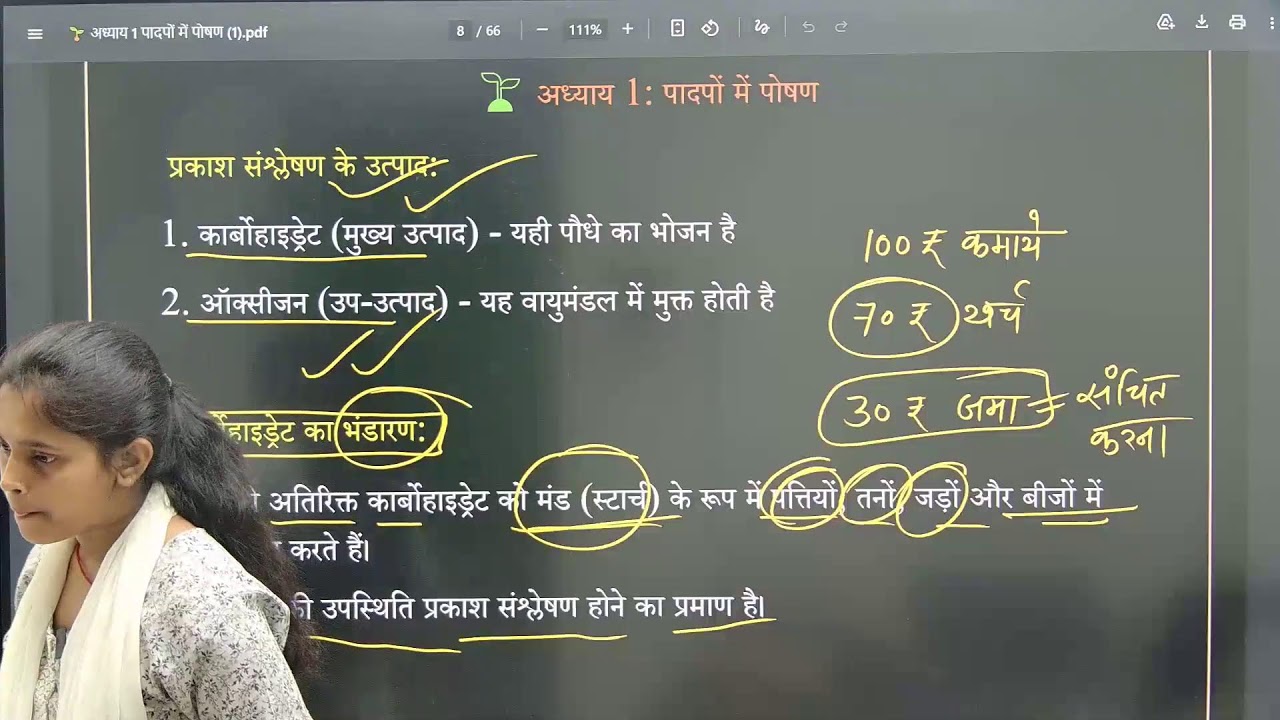 अध्याय 1 पादपों में पोषण (1).pdf
8 / 66
111%
अध्याय 1: पादपों में पोषण
प्रकाश संश्लेषण के उत्पाद:
1. कार्बोहाइड्रेट (मुख्य उत्पाद) - यही पौधे का भोजन है
2. ऑक्सीजन (उप-उत्पाद) - यह वायुमंडल में मुक्त होती है
100 ₹ कमाये
70 ₹ खर्च
30 ₹ जमा = संचित
करना
का भंडारण:
अतिरिक्त कार्बोहाइड्रेट को मंड (स्टार्च) के रूप में पत्तियों, तनों, जड़ों और बीजों में
करते हैं।
उपस्थिति प्रकाश संश्लेषण होने का प्रमाण है।